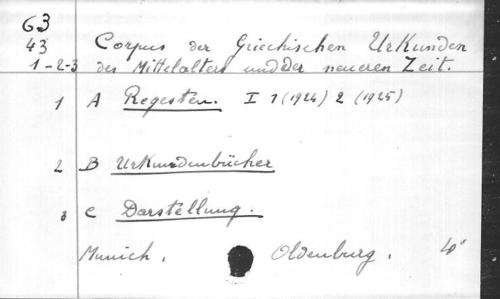 63
43 Corpus der Griechischen Urkunden
1-2-3 des Mittelalters und der neueren Zeit.
1 A Regesten. I 1 (1924) 2 (1925)
2 B Urkundenbücher
3 C Darstellung.
Munich. Oldenburg. 4°